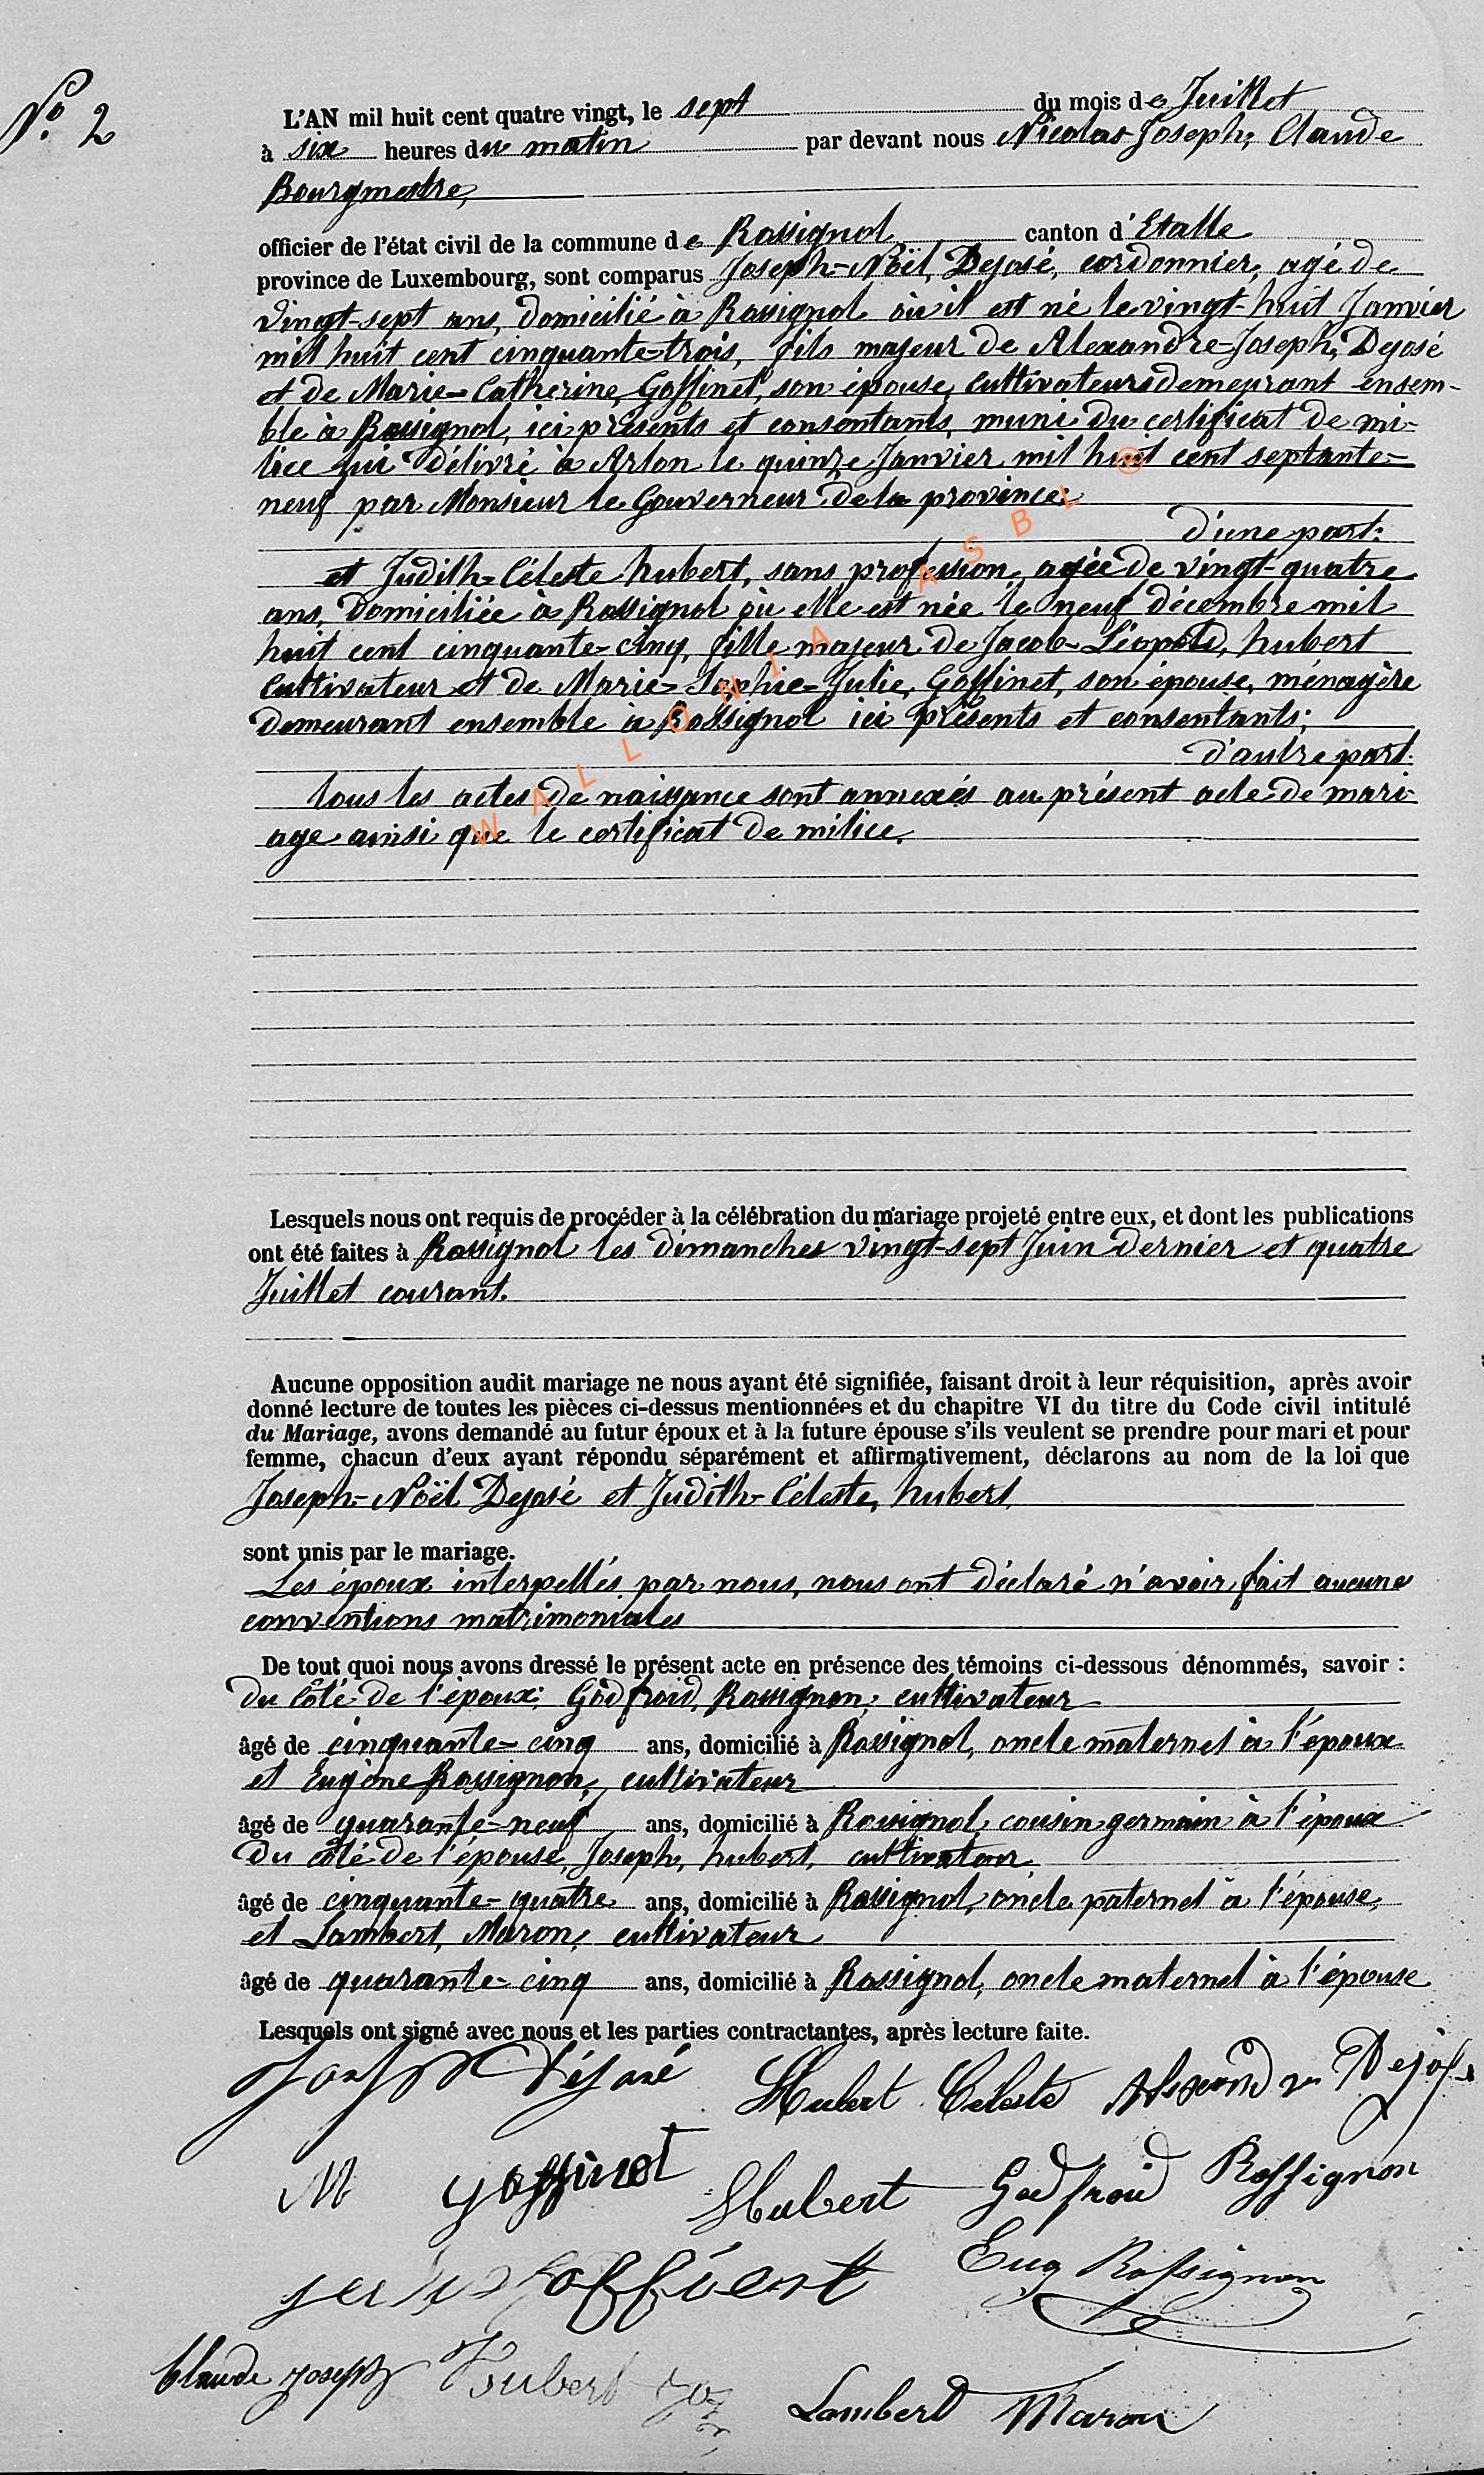 N° 2
L'AN mil huit cent quatre vingt, le sept du mois de Juillet
à six heures du matin par devant nous Nicolas-Joseph, Claude
Bourgmestre,
officier de l'état civil de la commune de Rossignol canton d'Etalle
province de Luxembourg, sont comparus Joseph-Noël, Dejosé, cordonnier, agé de
vingt-sept ans, domicilié à Rossignol où il est né le vingt-huit Janvier
mil huit cent cinquante-trois, fils majeur de Alexandre-Joseph, Dejosé
et de Marie-Catherine, Goffinet, son épouse, cultivateurs demeurant ensem-
ble à Rossignol, ici présents et consentants, muni du certificat de mi-
lice lui délivré à Arlon le quinze Janvier mil huit cent septante-
neuf par Monsieur le Gouverneur de la province;
d'une part:
et Judith-Céleste hubert, sans profession, agée de vingt-quatre
ans, domiciliée à Rossignol où elle est née le neuf décembre mil
huit cent cinquante-cinq, fille majeur de Jacob-Léopold, hubert
cultivateur et de Marie-Sophie-Julie, Goffinet, son épouse, ménagère
demeurant ensemble à Rossignol ici présents et consentants;
d'autre part.
tous les actes de naissance sont annexés au présent acte de mari-
age ainsi que le certificat de milice.
WALLONIA ASBL ®
Lesquels nous ont requis de procéder à la célébration du mariage projeté entre eux, et dont les publications
ont été faites à Rossignol les dimanches vingt-sept Juin dernier et quatre
Juillet courant.
Aucune opposition audit mariage ne nous ayant été signifiée, faisant droit à leur réquisition, après avoir
donné lecture de toutes les pièces ci-dessus mentionnées et du chapitre VI du titre du Code civil intitulé
du Mariage, avons demandé au futur époux et à la future épouse s'ils veulent se prendre pour mari et pour
femme, chacun d'eux ayant répondu séparément et affirmativement, déclarons au nom de la loi que
Joseph-Noël Dejosé et Judith-Céleste, hubert
sont unis par le mariage.
Les époux interpellés par nous, nous ont déclaré n'avoir fait aucunes
conventions matrimoniales
De tout quoi nous avons dressé le présent acte en présence des témoins ci-dessous dénommés, savoir :
du côté de l'époux: Godfroid, Rossignon, cultivateur
âgé de cinquante-cinq ans, domicilié à Rossignol, oncle maternel à l'époux
et Eugène Rossignon, cultivateur
âgé de quarante-neuf ans, domicilié à Rossignol, cousin germain à l'époux
du côté de l'épouse, Joseph, hubert, cultivateur,
âgé de cinquante-quatre ans, domicilié à Rossignol, oncle paternel à l'épouse,
et Lambert, Maron, cultivateur
âgé de quarante-cinq ans, domicilié à Rossignol, oncle maternel à l'épouse
Lesquels ont signé avec nous et les parties contractantes, après lecture faite.
Déjosé Hubert Celeste Alexandre Dejosé
M goffinet Hubert Godfroid Rossignon
Goffinet Eug Rossignon
Claude joseph Hubert Lambert Maron